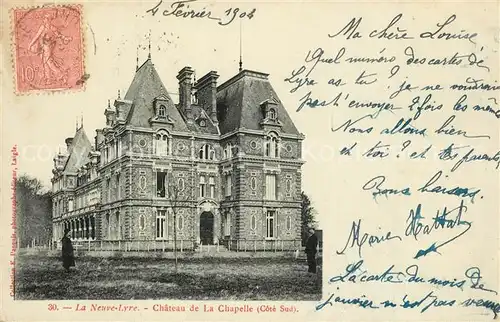 4 Février 1904
Ma chère Louise
Quel numéro des cartes de
Lyre as tu? je ne voudrais
pas t'envoyer 2 fois les mêmes
Nous allons bien
et toi? et tes parents
Bons baisers
Marie
La carte du mois de
janvier n'est pas venue
10
Collection P. Dagale, photographe-éditeur, Laigle.
30. — La Neuve-Lyre. - Château de La Chapelle (Côté Sud).